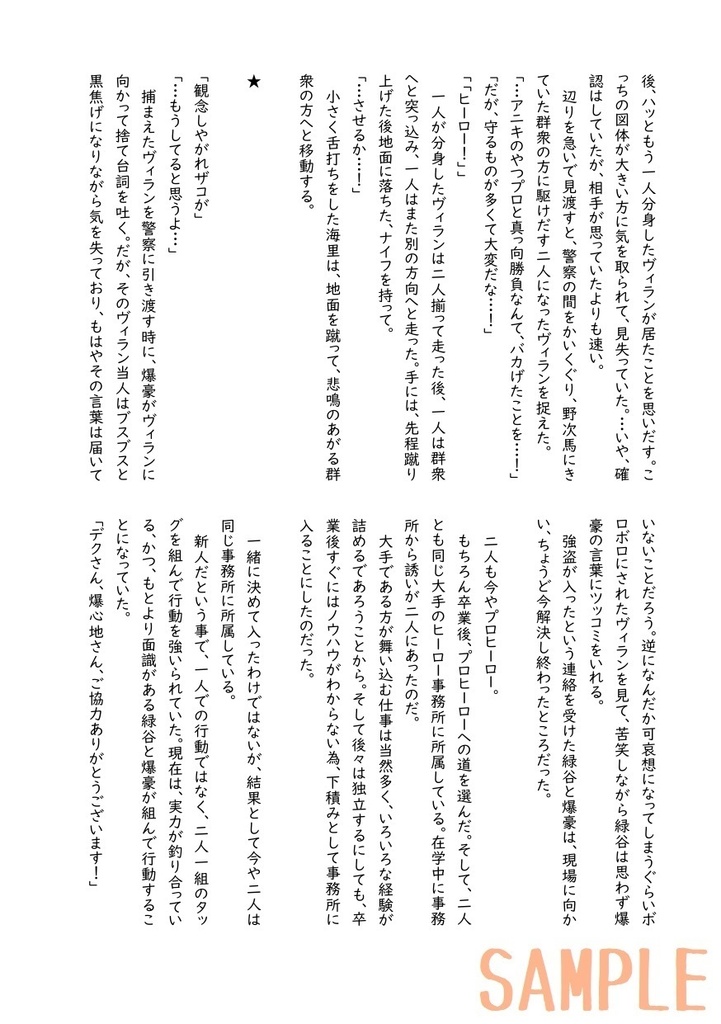 後、ハッともう一人分身したヴィランが居たことを思いだす。こ
っちの図体が大きい方に気を取られて、見失っていた。…いや、確
認はしていたが、相手が思っていたよりも速い。
辺りを急いで見渡すと、警察の間をかいくぐり、野次馬にき
ていた群衆の方に駆けだす二人になったヴィランを捉えた。
「…アニキのやつプロと真っ向勝負なんて、バカげたことを…！」
「だが、守るものが多くて大変だな…！」
「「ヒーロー！」」
一人が分身したヴィランは二人揃って走った後、一人は群衆
へと突っ込み、一人はまた別の方向へと走った。手には、先程蹴り
上げた後地面に落ちた、ナイフを持って。
「…させるか…！」
小さく舌打ちをした海里は、地面を蹴って、悲鳴のあがる群
衆の方へと移動する。
★
「観念しやがれザコが」
「…もうしてると思うよ…」
捕まえたヴィランを警察に引き渡す時に、爆豪がヴィランに
向かって捨て台詞を吐く。だが、そのヴィラン当人はブスブスと
黒焦げになりながら気を失っており、もはやその言葉は届いて
いないことだろう。逆になんだか可哀想になってしまうぐらいボ
ロボロにされたヴィランを見て、苦笑しながら緑谷は思わず爆
豪の言葉にツッコミをいれる。
強盗が入ったという連絡を受けた緑谷と爆豪は、現場に向か
い、ちょうど今解決し終わったところだった。
二人も今やプロヒーロー。
もちろん卒業後、プロヒーローへの道を選んだ。そして、二人
とも同じ大手のヒーロー事務所に所属している。在学中に事務
所から誘いが二人にあったのだ。
大手である方が舞い込む仕事は当然多く、いろいろな経験が
詰めるであろうことから。そして後々は独立するにしても、卒
業後すぐにはノウハウがわからない為、下積みとして事務所に
入ることにしたのだった。
一緒に決めて入ったわけではないが、結果として今や二人は
同じ事務所に所属している。
新人だという事で、一人での行動ではなく、二人一組のタッ
グを組んで行動を強いられていた。現在は、実力が釣り合ってい
る、かつ、もとより面識がある緑谷と爆豪が組んで行動するこ
とになっていた。
「デクさん、爆心地さん、ご協力ありがとうございます！」
SAMPLE